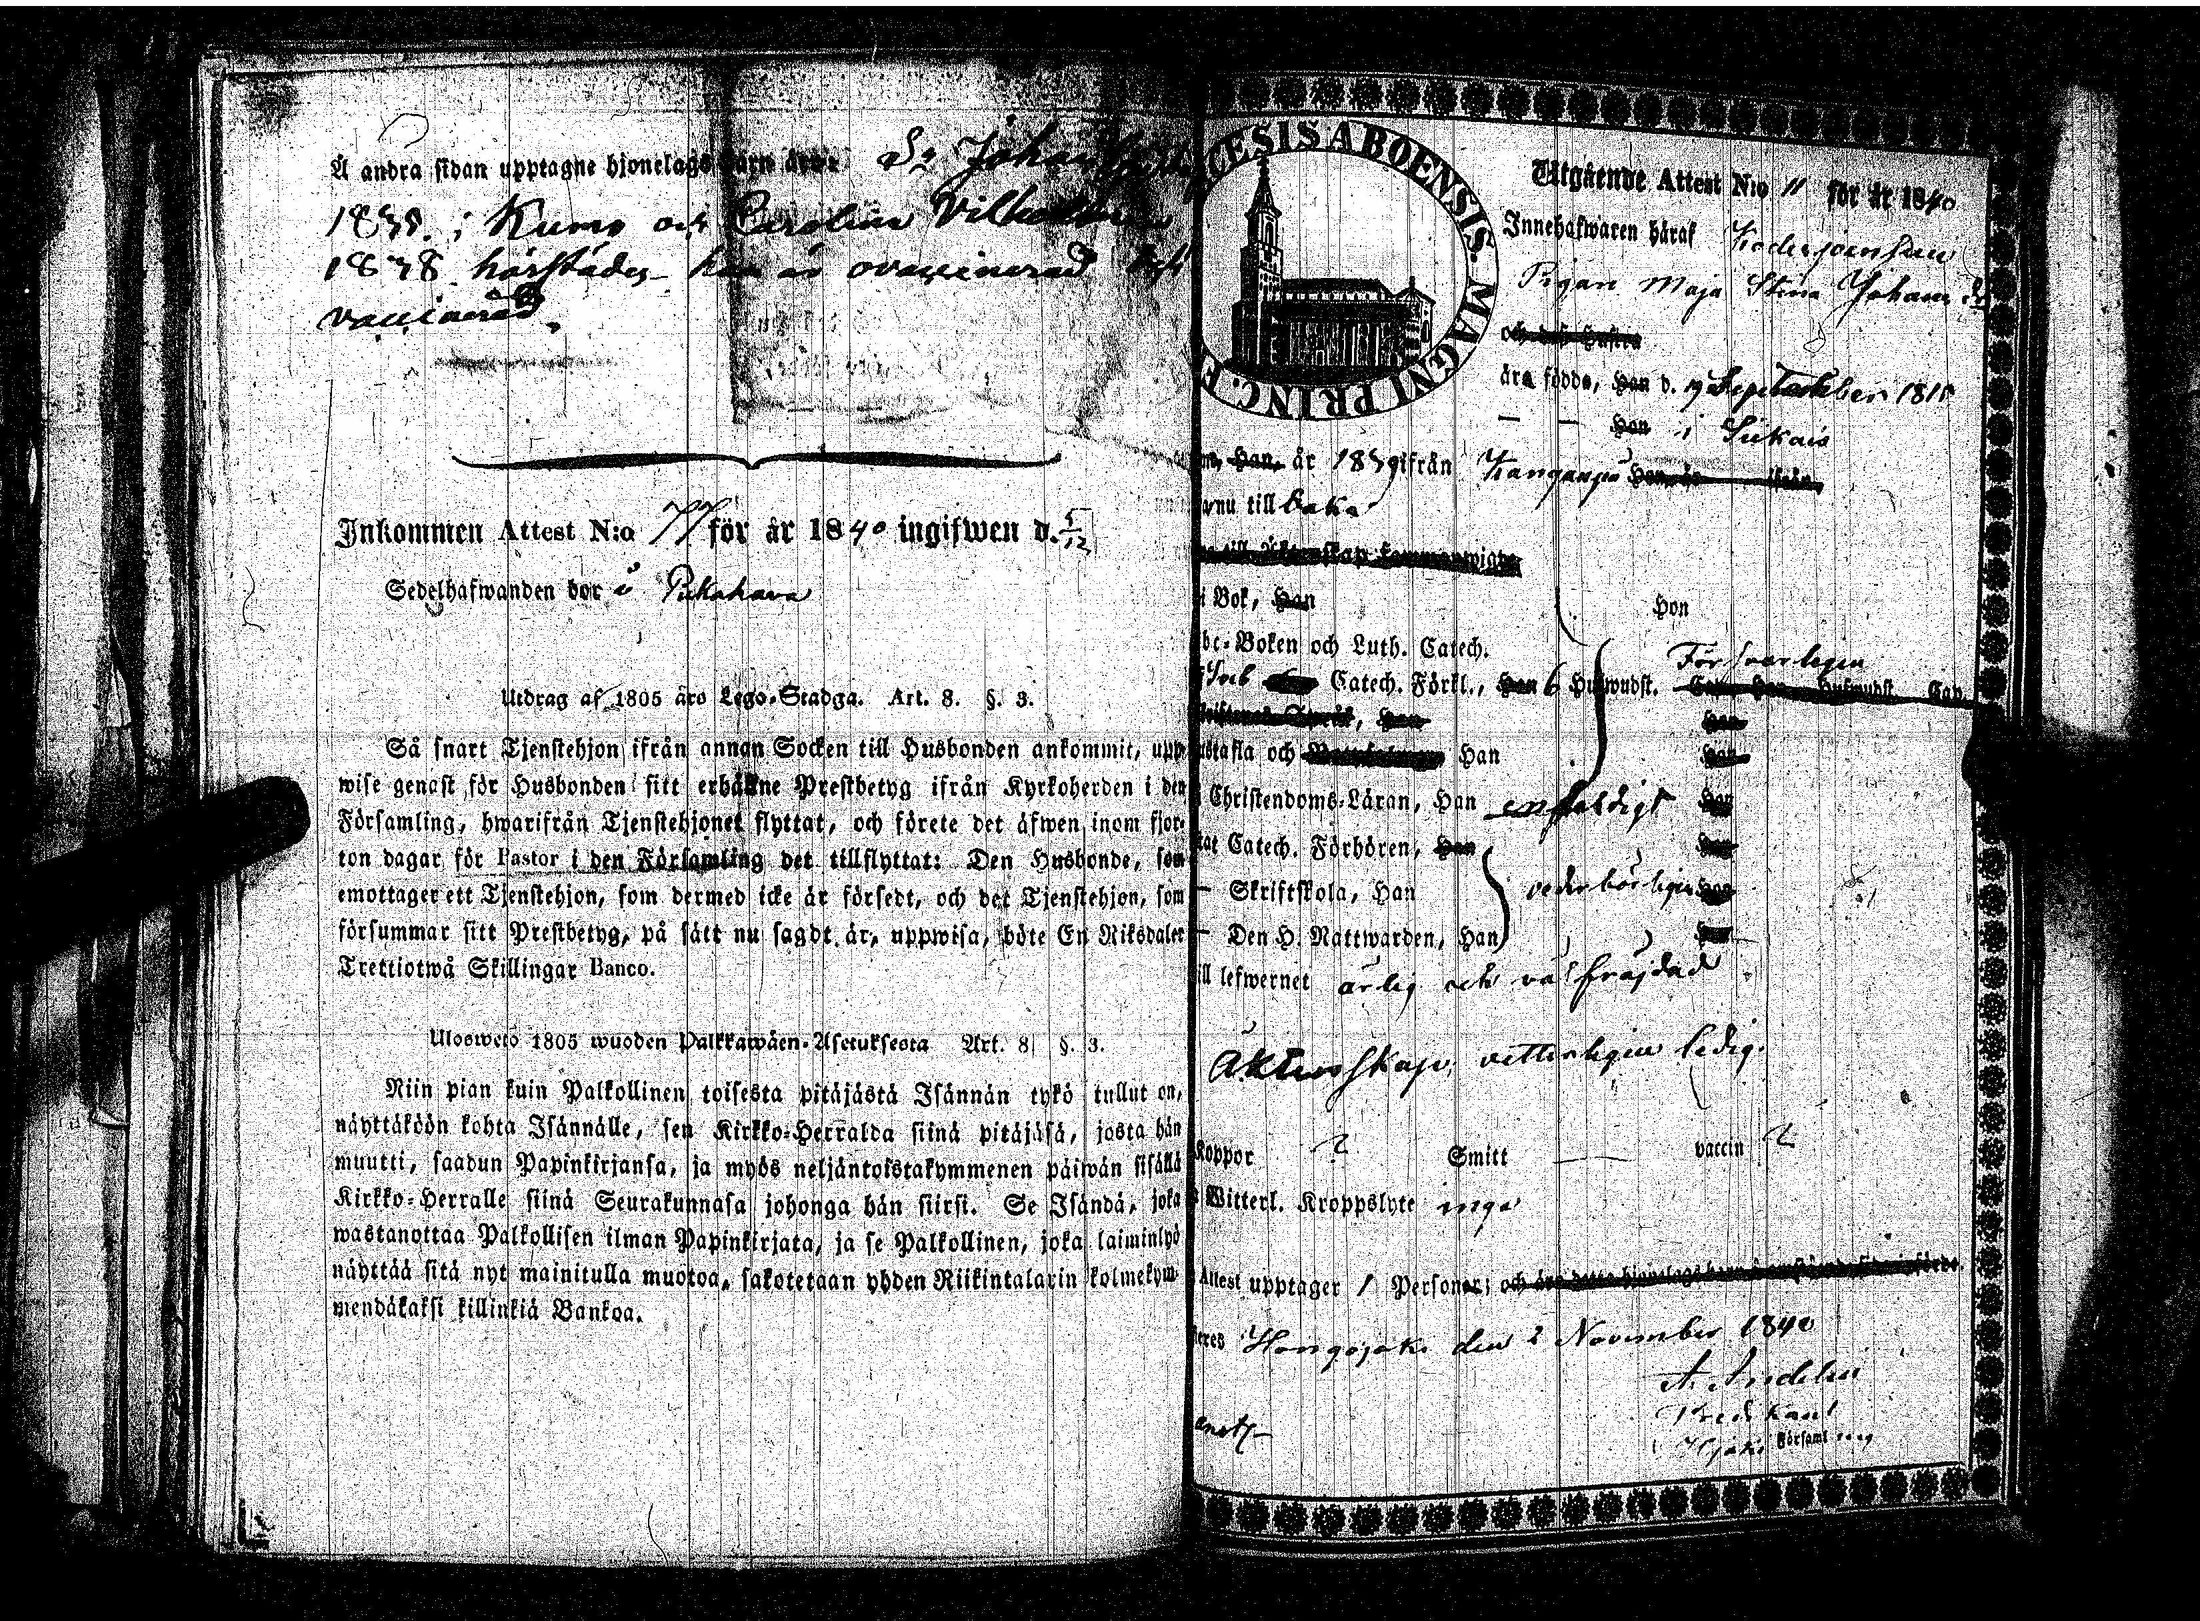 Å andra sidan upptagne hjonelags barn äro: Sn Johan
1835 i Kumo och Carolina Vilhelmina
1838 härstädes han är ovaccinerad
vaccinerad.
Inkommen Attest N:o 77 för år 1840 ingifwen d. 5/12
Sedelhafwanden bor i Pukahava
Utdrag af 1805 års Lego-Stadga. Art. 8. §. 3.
Så snart Tjenstehjon ifrån annan Socken till Husbonden ankommit, upp-
wise genast för Husbonden sitt erhållne Prestbetyg ifrån Kyrkoherden i den
Församling, hwarifrån Tjenstehjonet flyttat, och förete det äfwen inom fjor-
ton dagar för Pastor i den Församling det tillflyttat: Den Husbonde, som
emottager ett Tjenstehjon, som dermed icke är försedt, och det Tjenstehjon, som
försummar sitt Prestbetyg, på sätt nu sagdt är, uppwisa, böte En Riksdaler
Trettiotwå Skillingar Banco.
Uloswetö 1805 wuoden Palkkawäen-Asetuksesta Art. 8 §. 3.
Niin pian kuin Palkollinen toisesta pitäjästä Isännän tykö tullut on,
näyttäköön kohta Isännälle, sen Kirkko-Herralda siinä pitäjäsä, josta hän
muutti, saadun Papinkirjansa, ja myös neljäntoistakymmenen päiwän sisällä
Kirkko-Herralle siinä Seurakunnasa johonga hän siirsi. Se Isändä, joka
wastanottaa Palkollisen ilman Papinkirjata, ja se Palkollinen, joka laiminlyö
näyttää sitä nyt mainitulla muotoa, sakotetaan yhden Riikintalarin kolmekym-
mendäkaksi killinkiä Bankoa.
CESIS ABOENSIS. MAGNI PRINC. F
Utgående Attest N:o 11 för år 1840
Innehafwaren häraf
Pigan Maja Stina Johans dr
och dess Hustru
äro födde, Han d. 19 September 1818
— — Hon i Siikais
Han, år 1839 ifrån Kangasjn Hon, år ifrån
nu till baka
till Äktenskap sammanwigde
i Bok, Han Hon
bc-Boken och Luth. Catech.
Försvarligen
Catech. Förkl., Han 6 Hufwudst. Cat. Hon Hufwudst. Cap.
Språk, Han Hon
ustafla och Han Hon
Christendoms-Läran, Han enfaldigt Hon
Catech. Förhören, Han Hon
— Skriftskola, Han vederbörligen Hon
— Den H. Nattwarden, Han Hon
ill lefwernet ärlig och välfräjdad
Äktenskap, vetterligen ledig.
Koppor ? Smitt — vaccin ?
Witterl. Kroppslyte inga
Attest upptager 1 Personer; och äro detta hjonelags barn å omstående sida införde.
eres Hongojoki den 2 November 1840
A. Andelin
Predikant
i Hjoki Församling